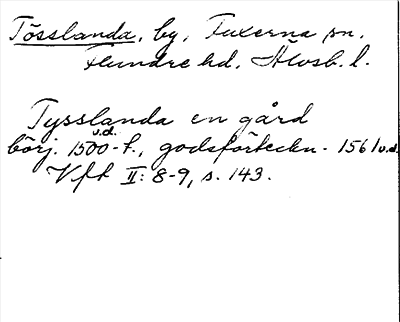 Tösslanda, by, Fuxerna sn.
Flundre hd, Älvsb. l.
Tysslanda en gård
börj. 1500-t., v.d. godsförteckn. 1561 v.d.
Vft II: 8-9, s. 143.